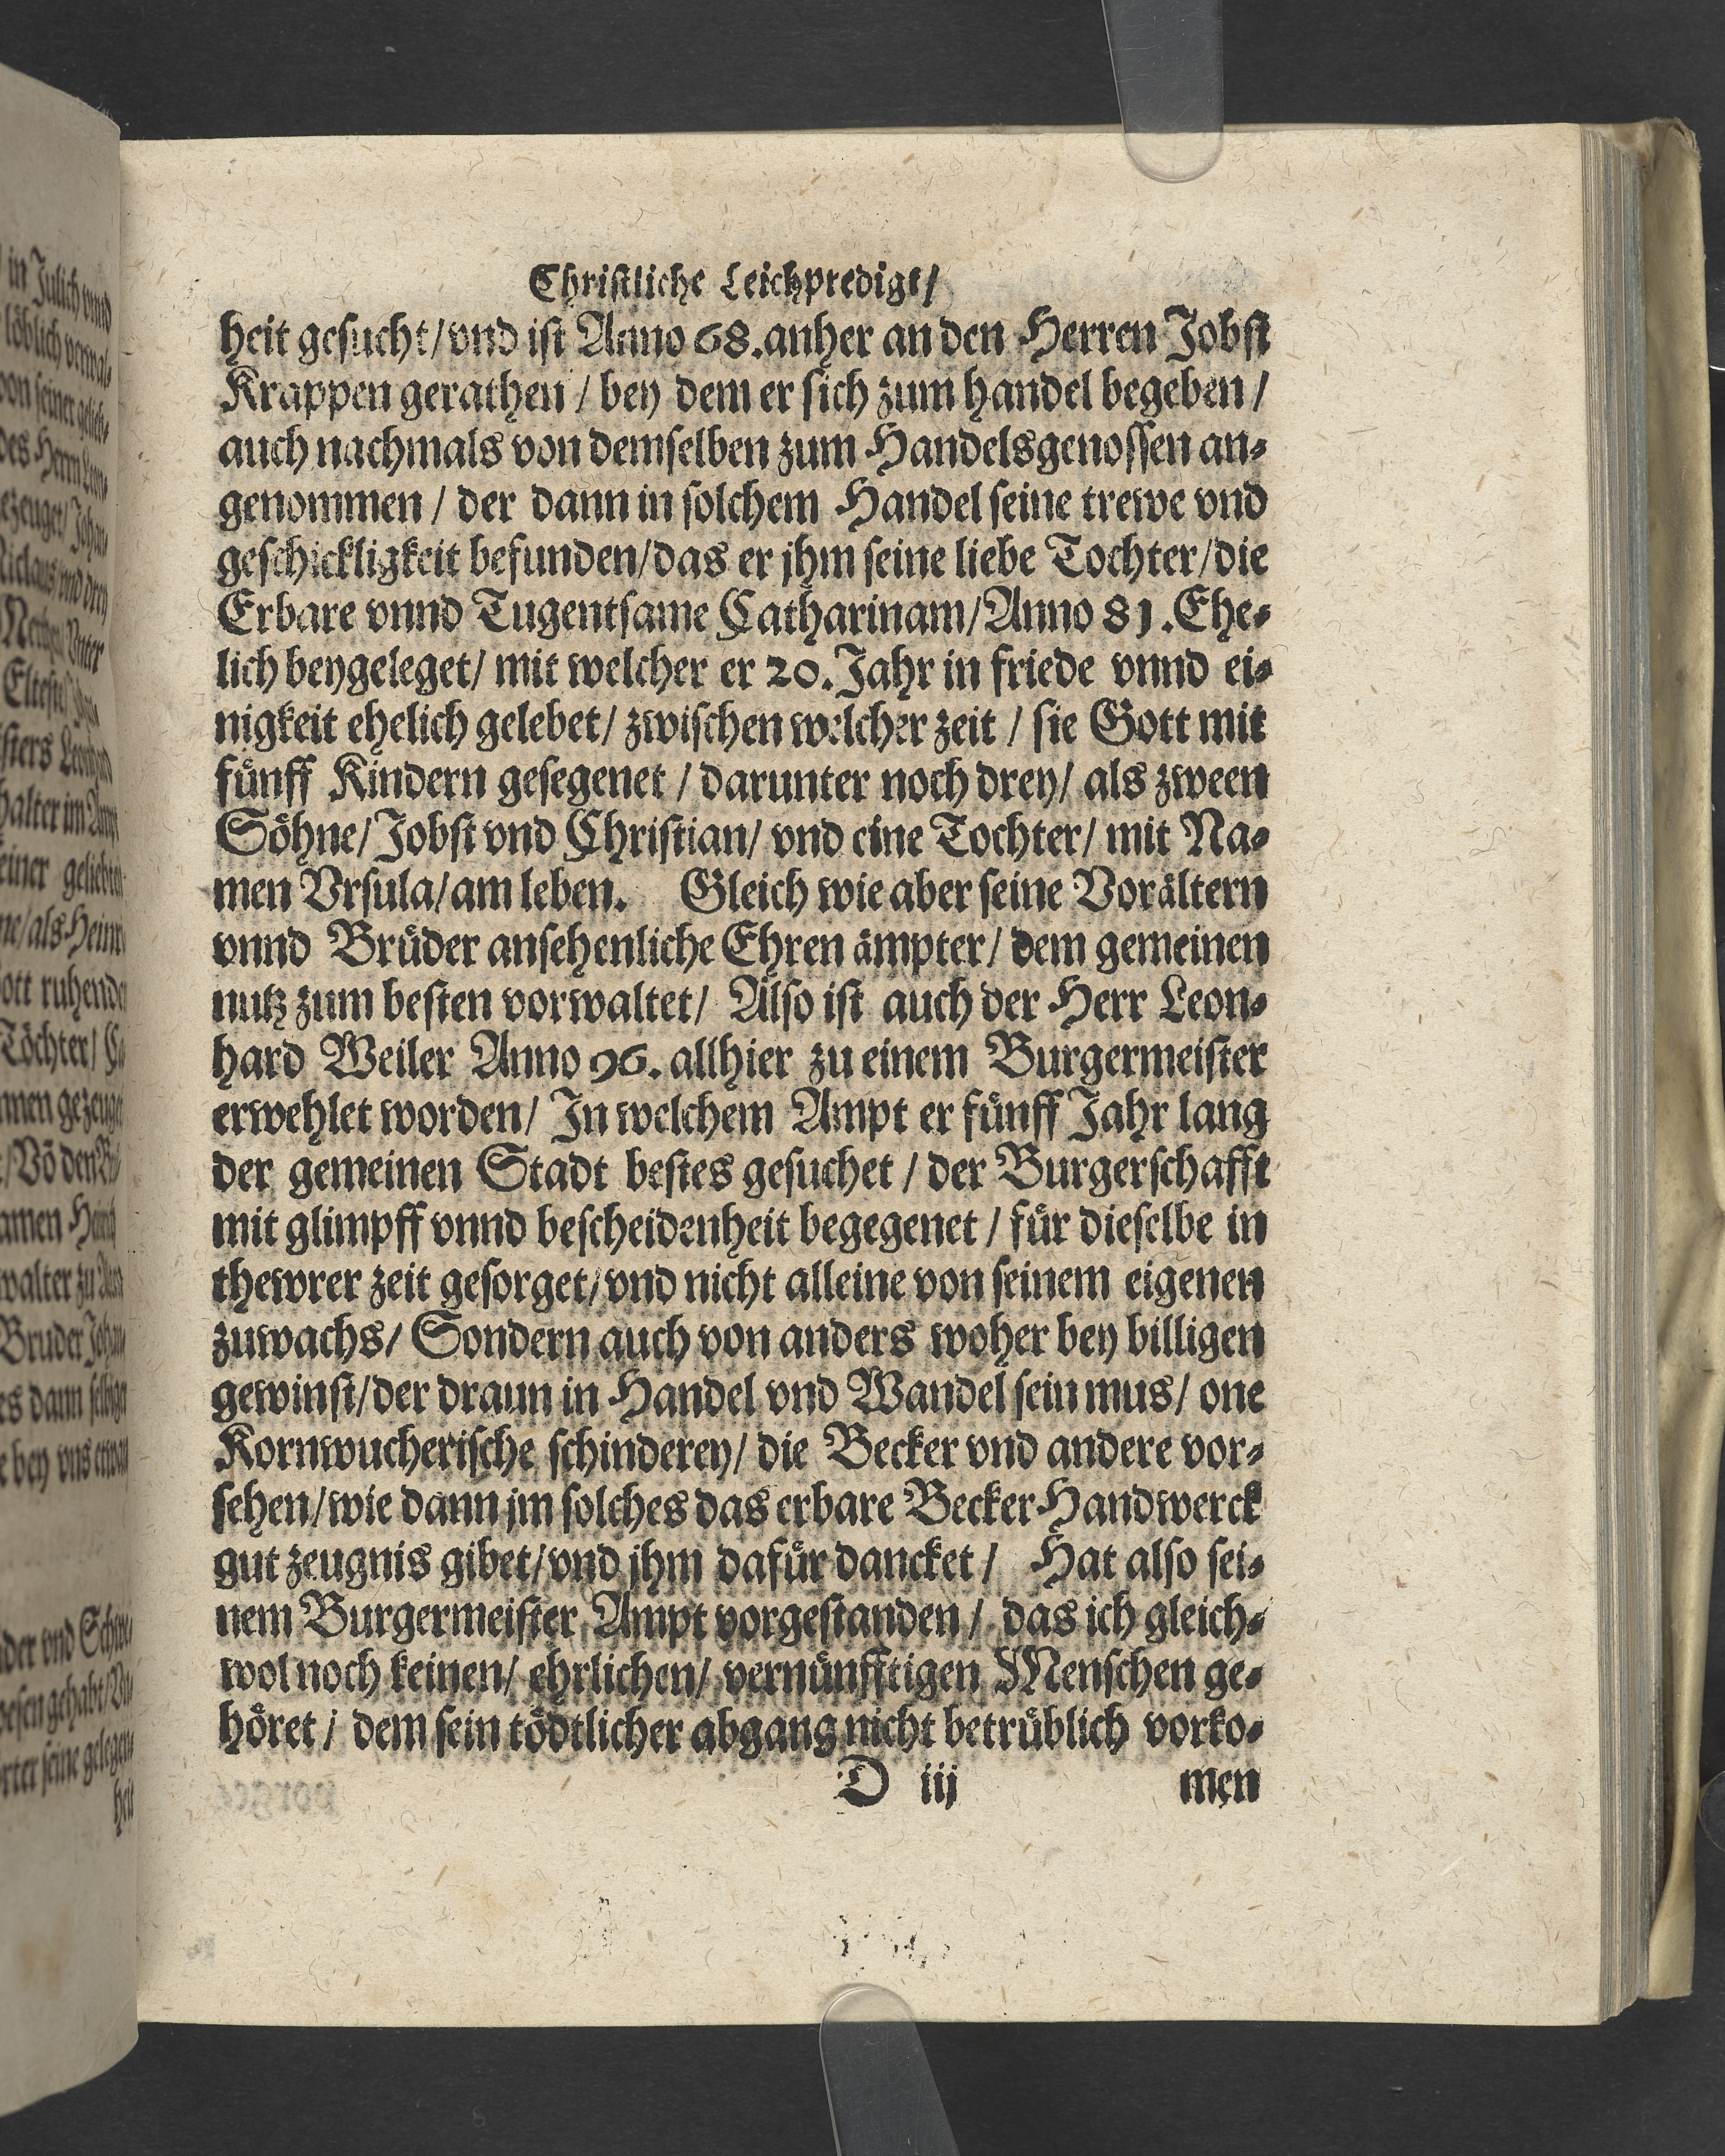 Christliche Leichpredigt/
heit gesucht/vnd ist Anno 68.anher an den Herren Jobst
Krappen gerathen / bey dem er sich zum handel begeben /
auch nachmals von demselben zum Handelsgenossen an-
genommen / der dann in solchem Handel seine trewe vnd
geschickligkeit befunden/das er jhm seine liebe Tochter/die
Erbare vnnd Tugentsame Catharinam/Anno 81.Ehe-
lich beygeleget/ mit welcher er 20. Jahr in friede vnnd ei-
nigkeit ehelich gelebet/ zwischen welcher zeit / sie Gott mit
fünff Kindern gesegenet / darunter noch drey/ als zween
Söhne/Jobst vnd Christian/ vnd eine Tochter/ mit Na-
men Vrsula/am leben. Gleich wie aber seine Vorältern
vnnd Brüder ansehenliche Ehren ämpter/ dem gemeinen
nutz zum besten vorwaltet/ Also ist auch der Herr Leon-
hard Weiler Anno 96. allhier zu einem Burgermeister
erwehlet worden/ In welchem Ampt er fünff Jahr lang
der gemeinen Stadt bestes gesuchet / der Burgerschafft
mit glimpff vnnd bescheidenheit begegenet / für dieselbe in
thewrer zeit gesorget/vnd nicht alleine von seinem eigenen
zuwachs/ Sondern auch von anders woher bey billigen
gewinst/der draun in Handel vnd Wandel sein mus/ one
Kornwucherische schinderey/ die Becker vnd andere vor-
sehen/wie dann jm solches das erbare Becker Handwerck
gut zeugnis gibet/vnd jhm dafür dancket / Hat also sei-
nem Burgermeister Ampt vorgestanden / das ich gleich-
wol noch keinen/ ehrlichen/ vernünfftigen Menschen ge-
höret / dem sein tödtlicher abgang nicht betrüblich vorko-
D iij men